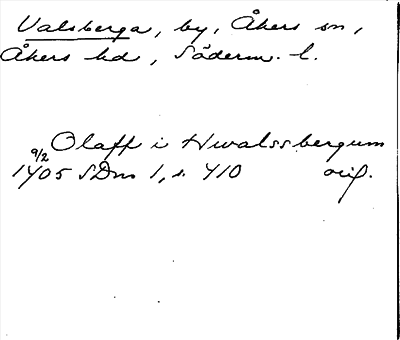 Valsberga, by, Åkers sn,
Åkers hd, Söderm. l.
Olaff i Hwalssbergum
9/2 1405 SDns 1, s. 410 orig.